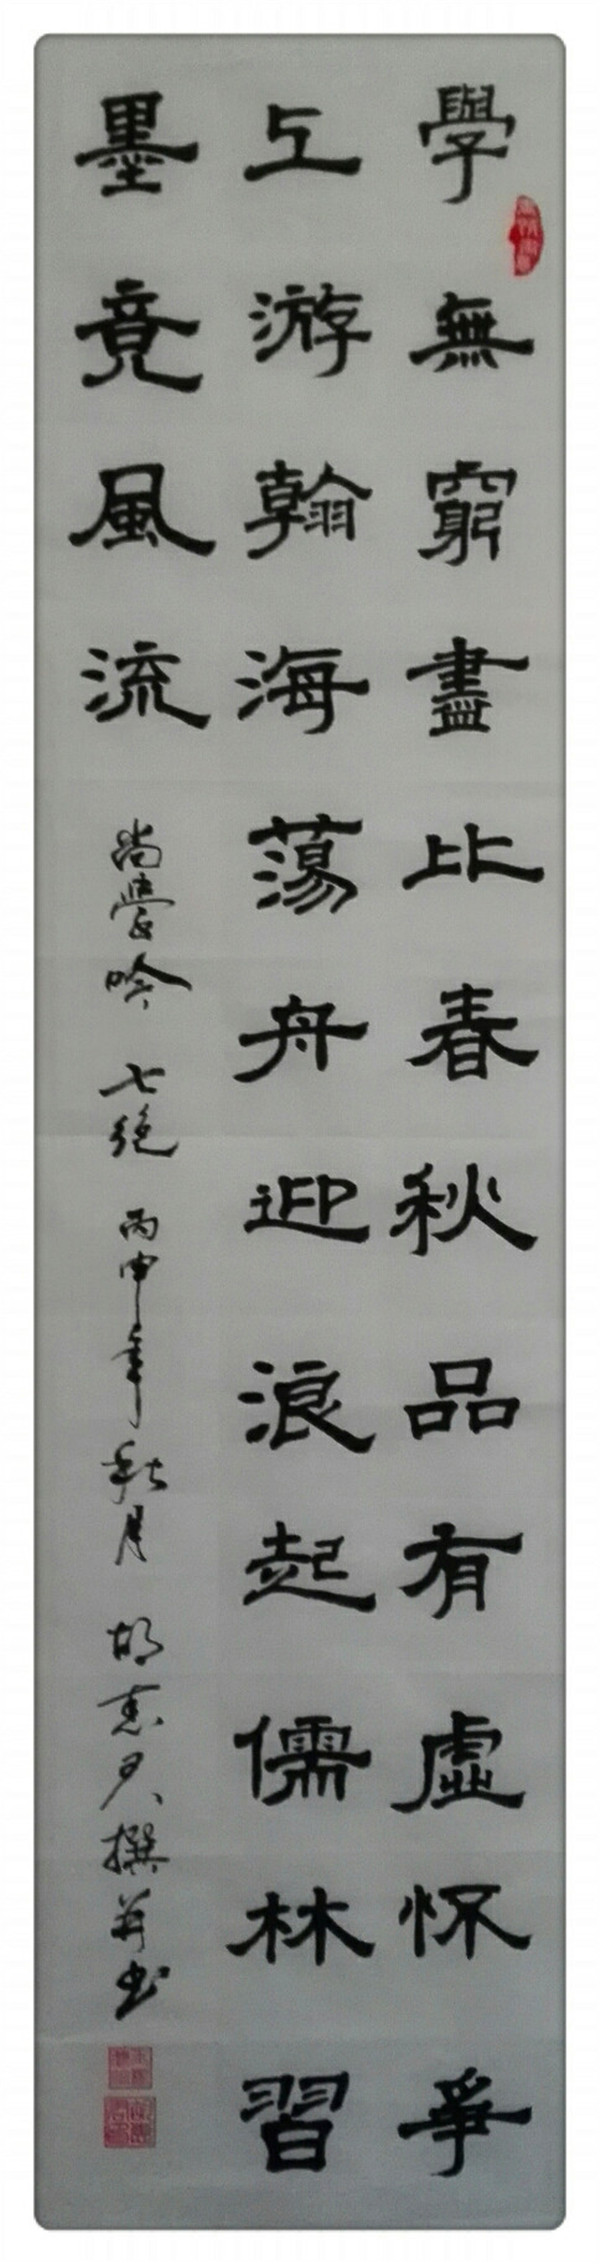 學無窮盡比春秋品有虛怀爭
上游翰海蕩舟迎浪起儒林習
墨竟風流 尚學吟 七絕 丙申年秋月 胡志 撰并书